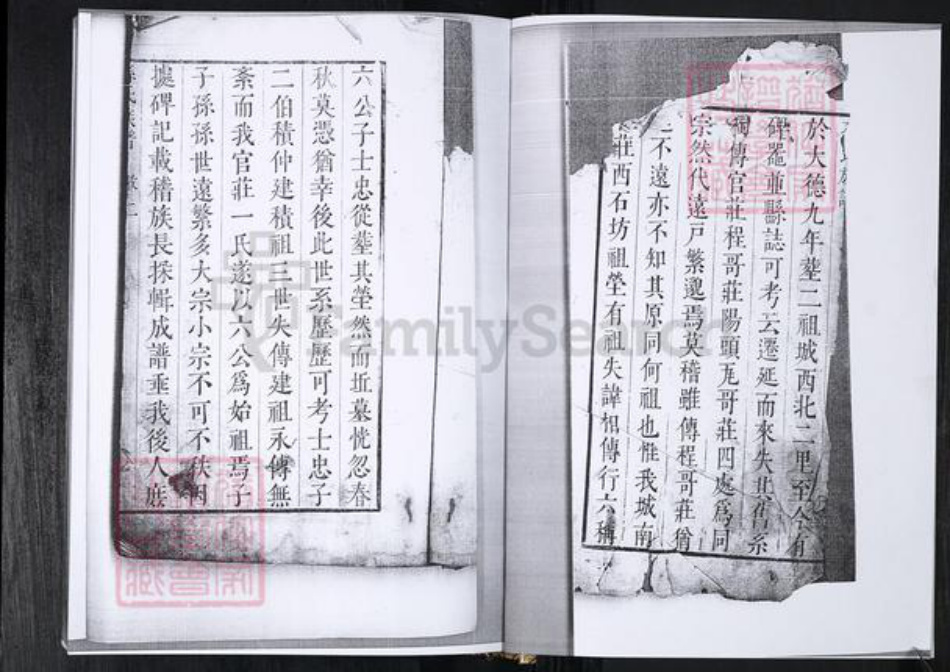 於大德九年塟二祖城西北二里至今有
碑墨並縣誌可考云遷延而來失其舊系
獨傳官莊程哥莊陽頭瓦哥莊四處爲同
宗然代遠戸繁邈焉莫稽雖傳程哥莊尙
不遠亦不知其原同何祖也惟我城南
莊西石坊祖塋有祖失諱相傳行六稱
六公子士忠從塟其塋然而坵墓恍忽春
秋莫憑猶幸後此世系歷歷可考士忠子
二伯積仲建積祖三世失傳建祖永傳無
紊而我官莊一氏遂以六公爲始祖焉子
子孫孫世遠繁多大宗小宗不可不秩因
據碑記載稽族長採輯成譜垂我後人庶
FamilySearch